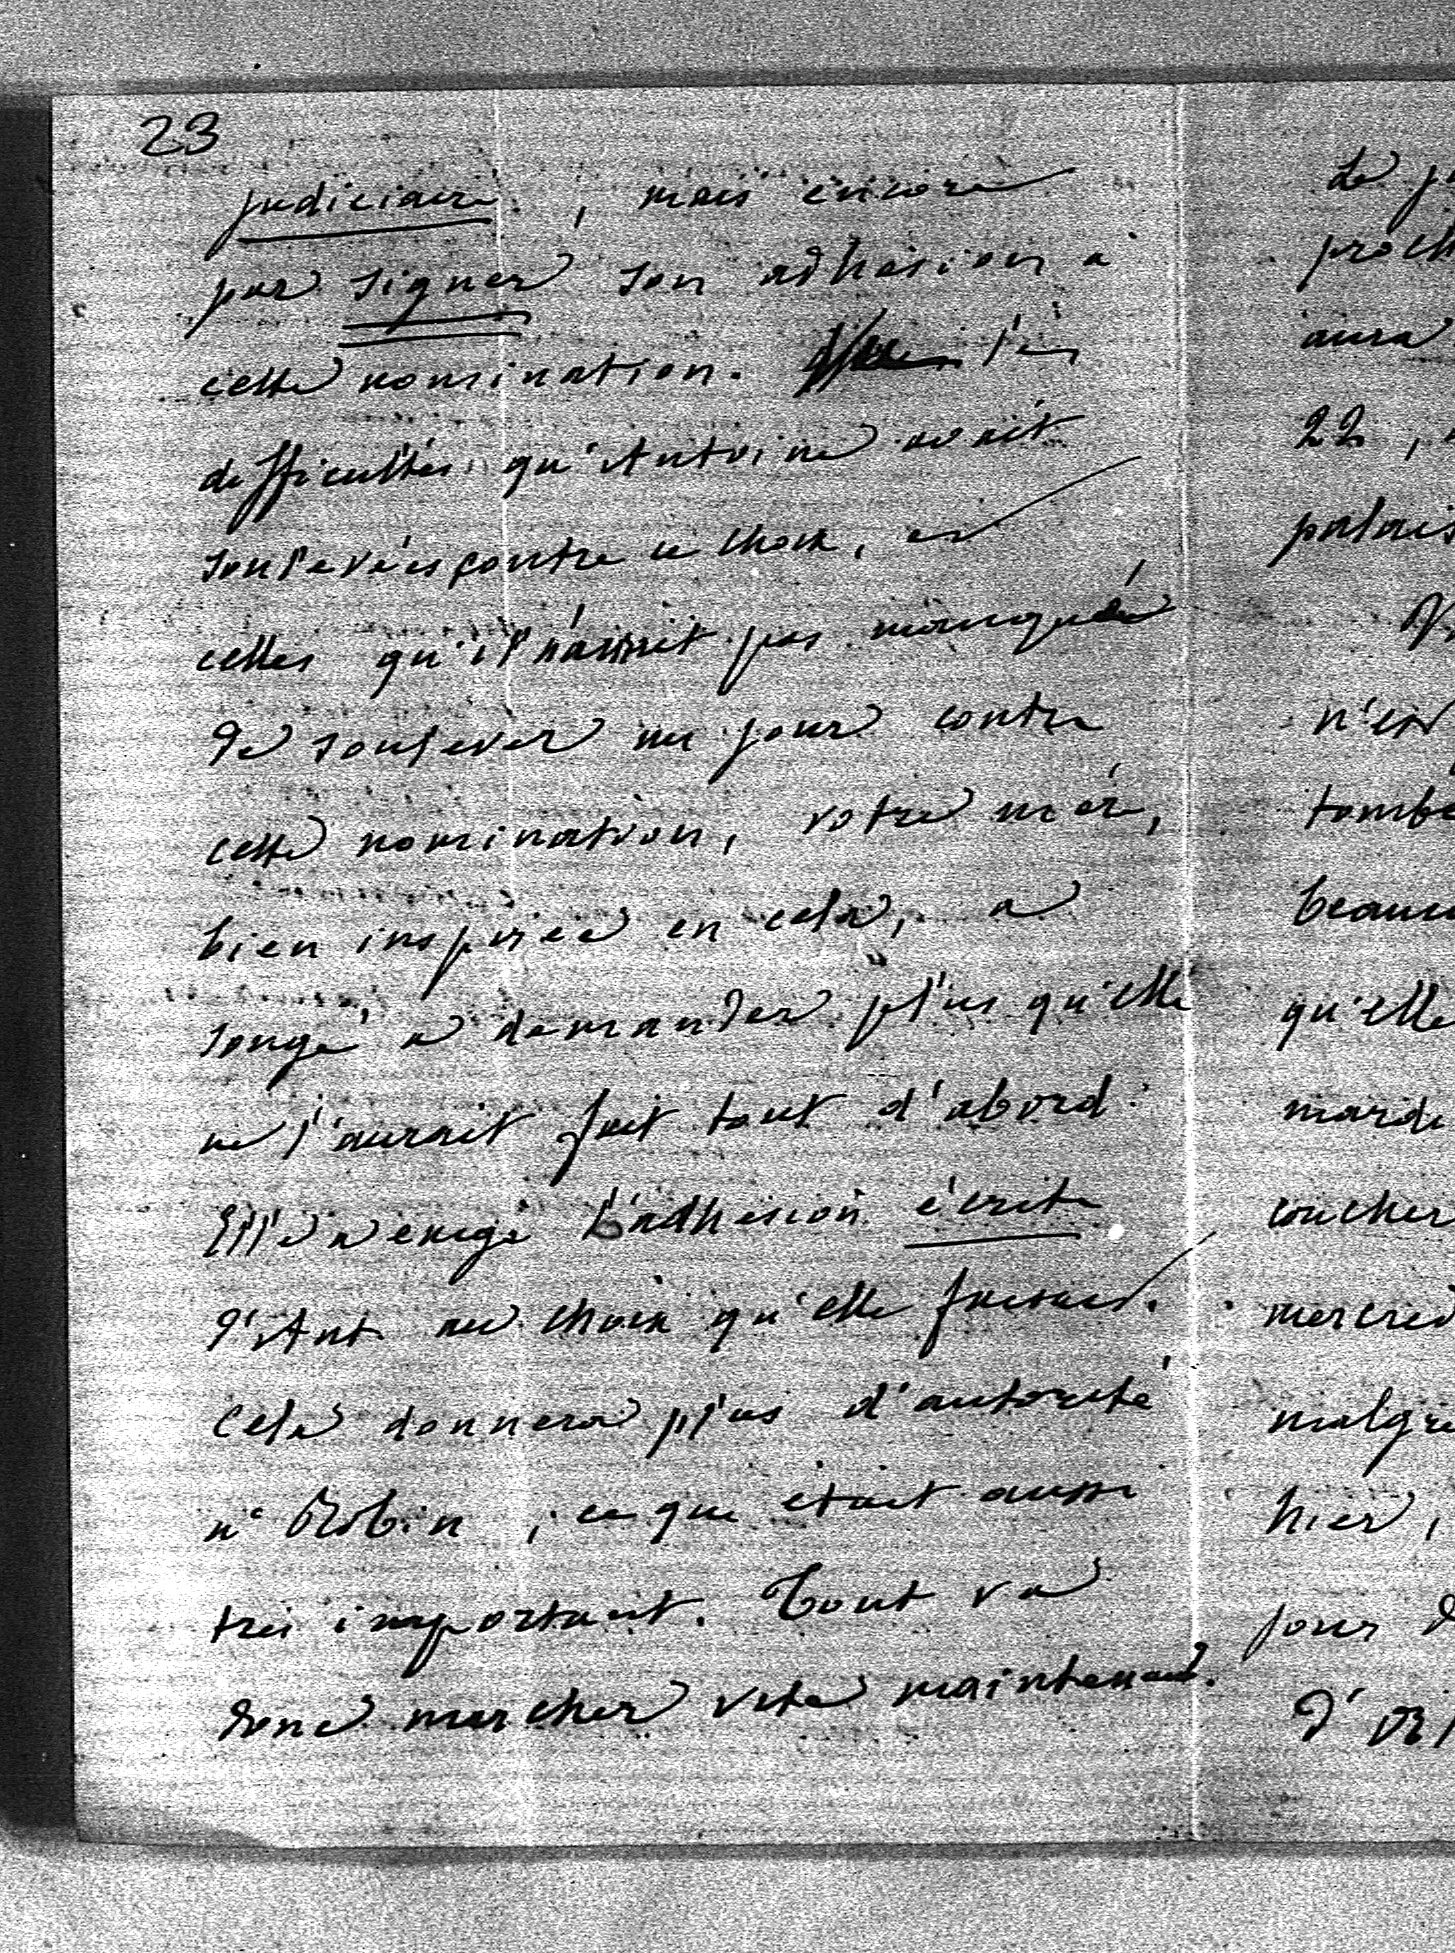 23
judiciaire, mais encore
par signer son adhésion à
cette nomination. Les
difficultés qu'Antoine avait
soulevées contre ce choix, et
celles qu'il n'aurait pas manqué
de soulever un jour contre
cette nomination, votre mère,
bien inspirée en cela, a
songé à demander plus qu'elle
ne l'aurait fait tout d'abord.
Elle a exigé l'adhésion écrite
d'Ant au choix qu'elle faisait.
Cela donnera plus d'autorité
Me Robin, ce que était aussi
très important. Tout va
donc marcher vite maintenant.
aura
22,
palais
n'est
qu'elle
coucher
hier,
jour